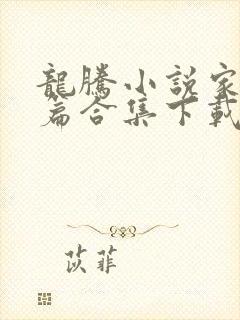 龍騰小說家
篇合集下載
苡菲